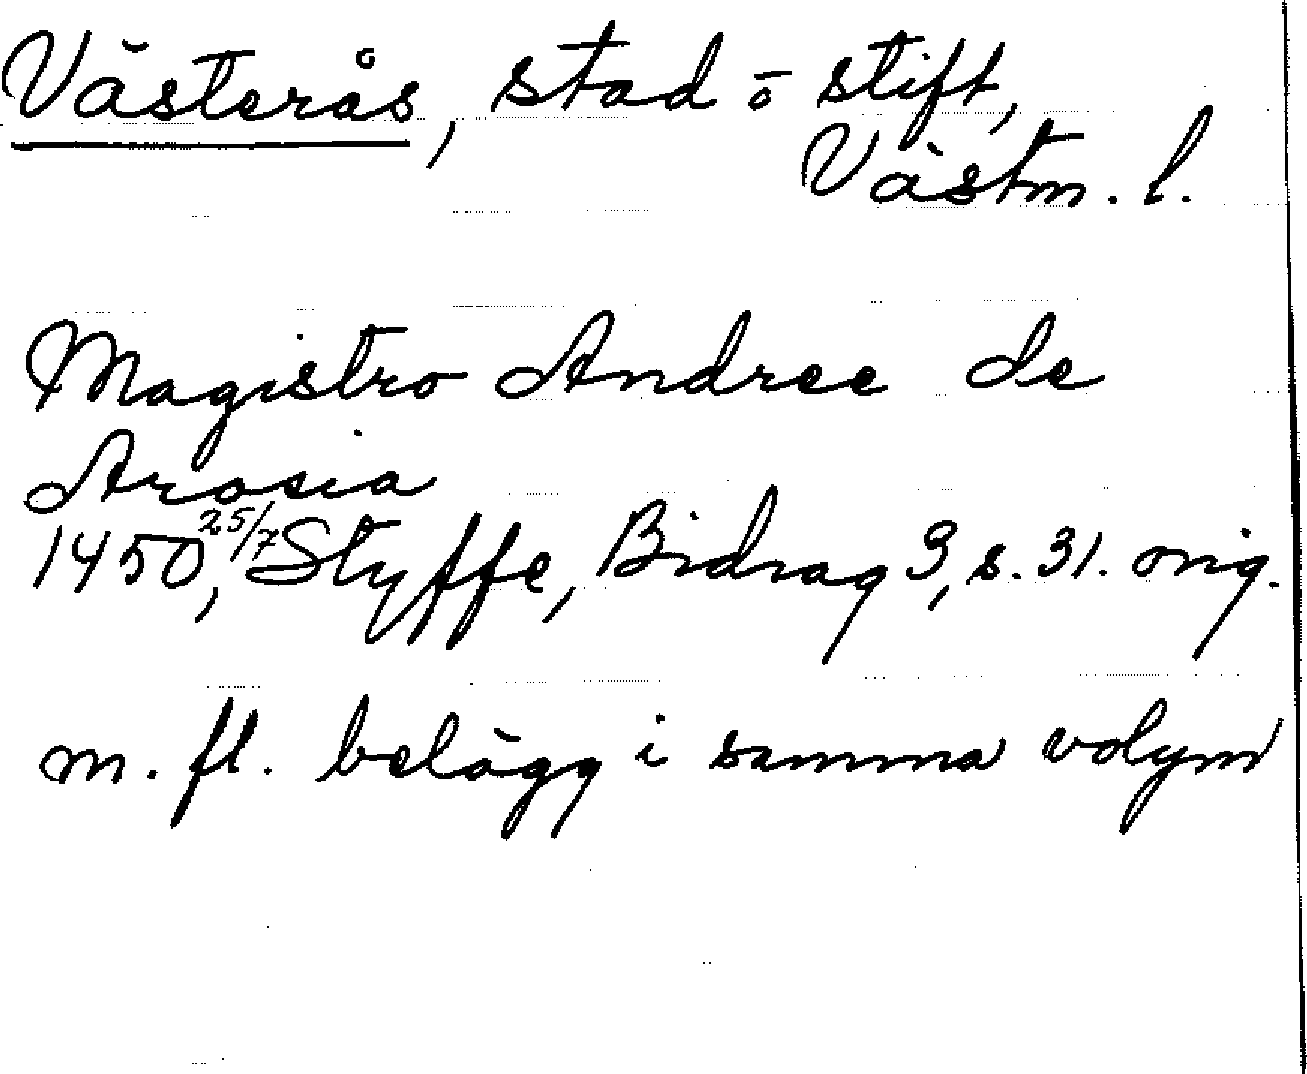 Västerås, stad o stift,
Västm. l.
Magistro Andree de
Arosia
1450 25/7, Styffe, Bidrag 3, s. 31. orig.
m. fl. belägg i samma volym